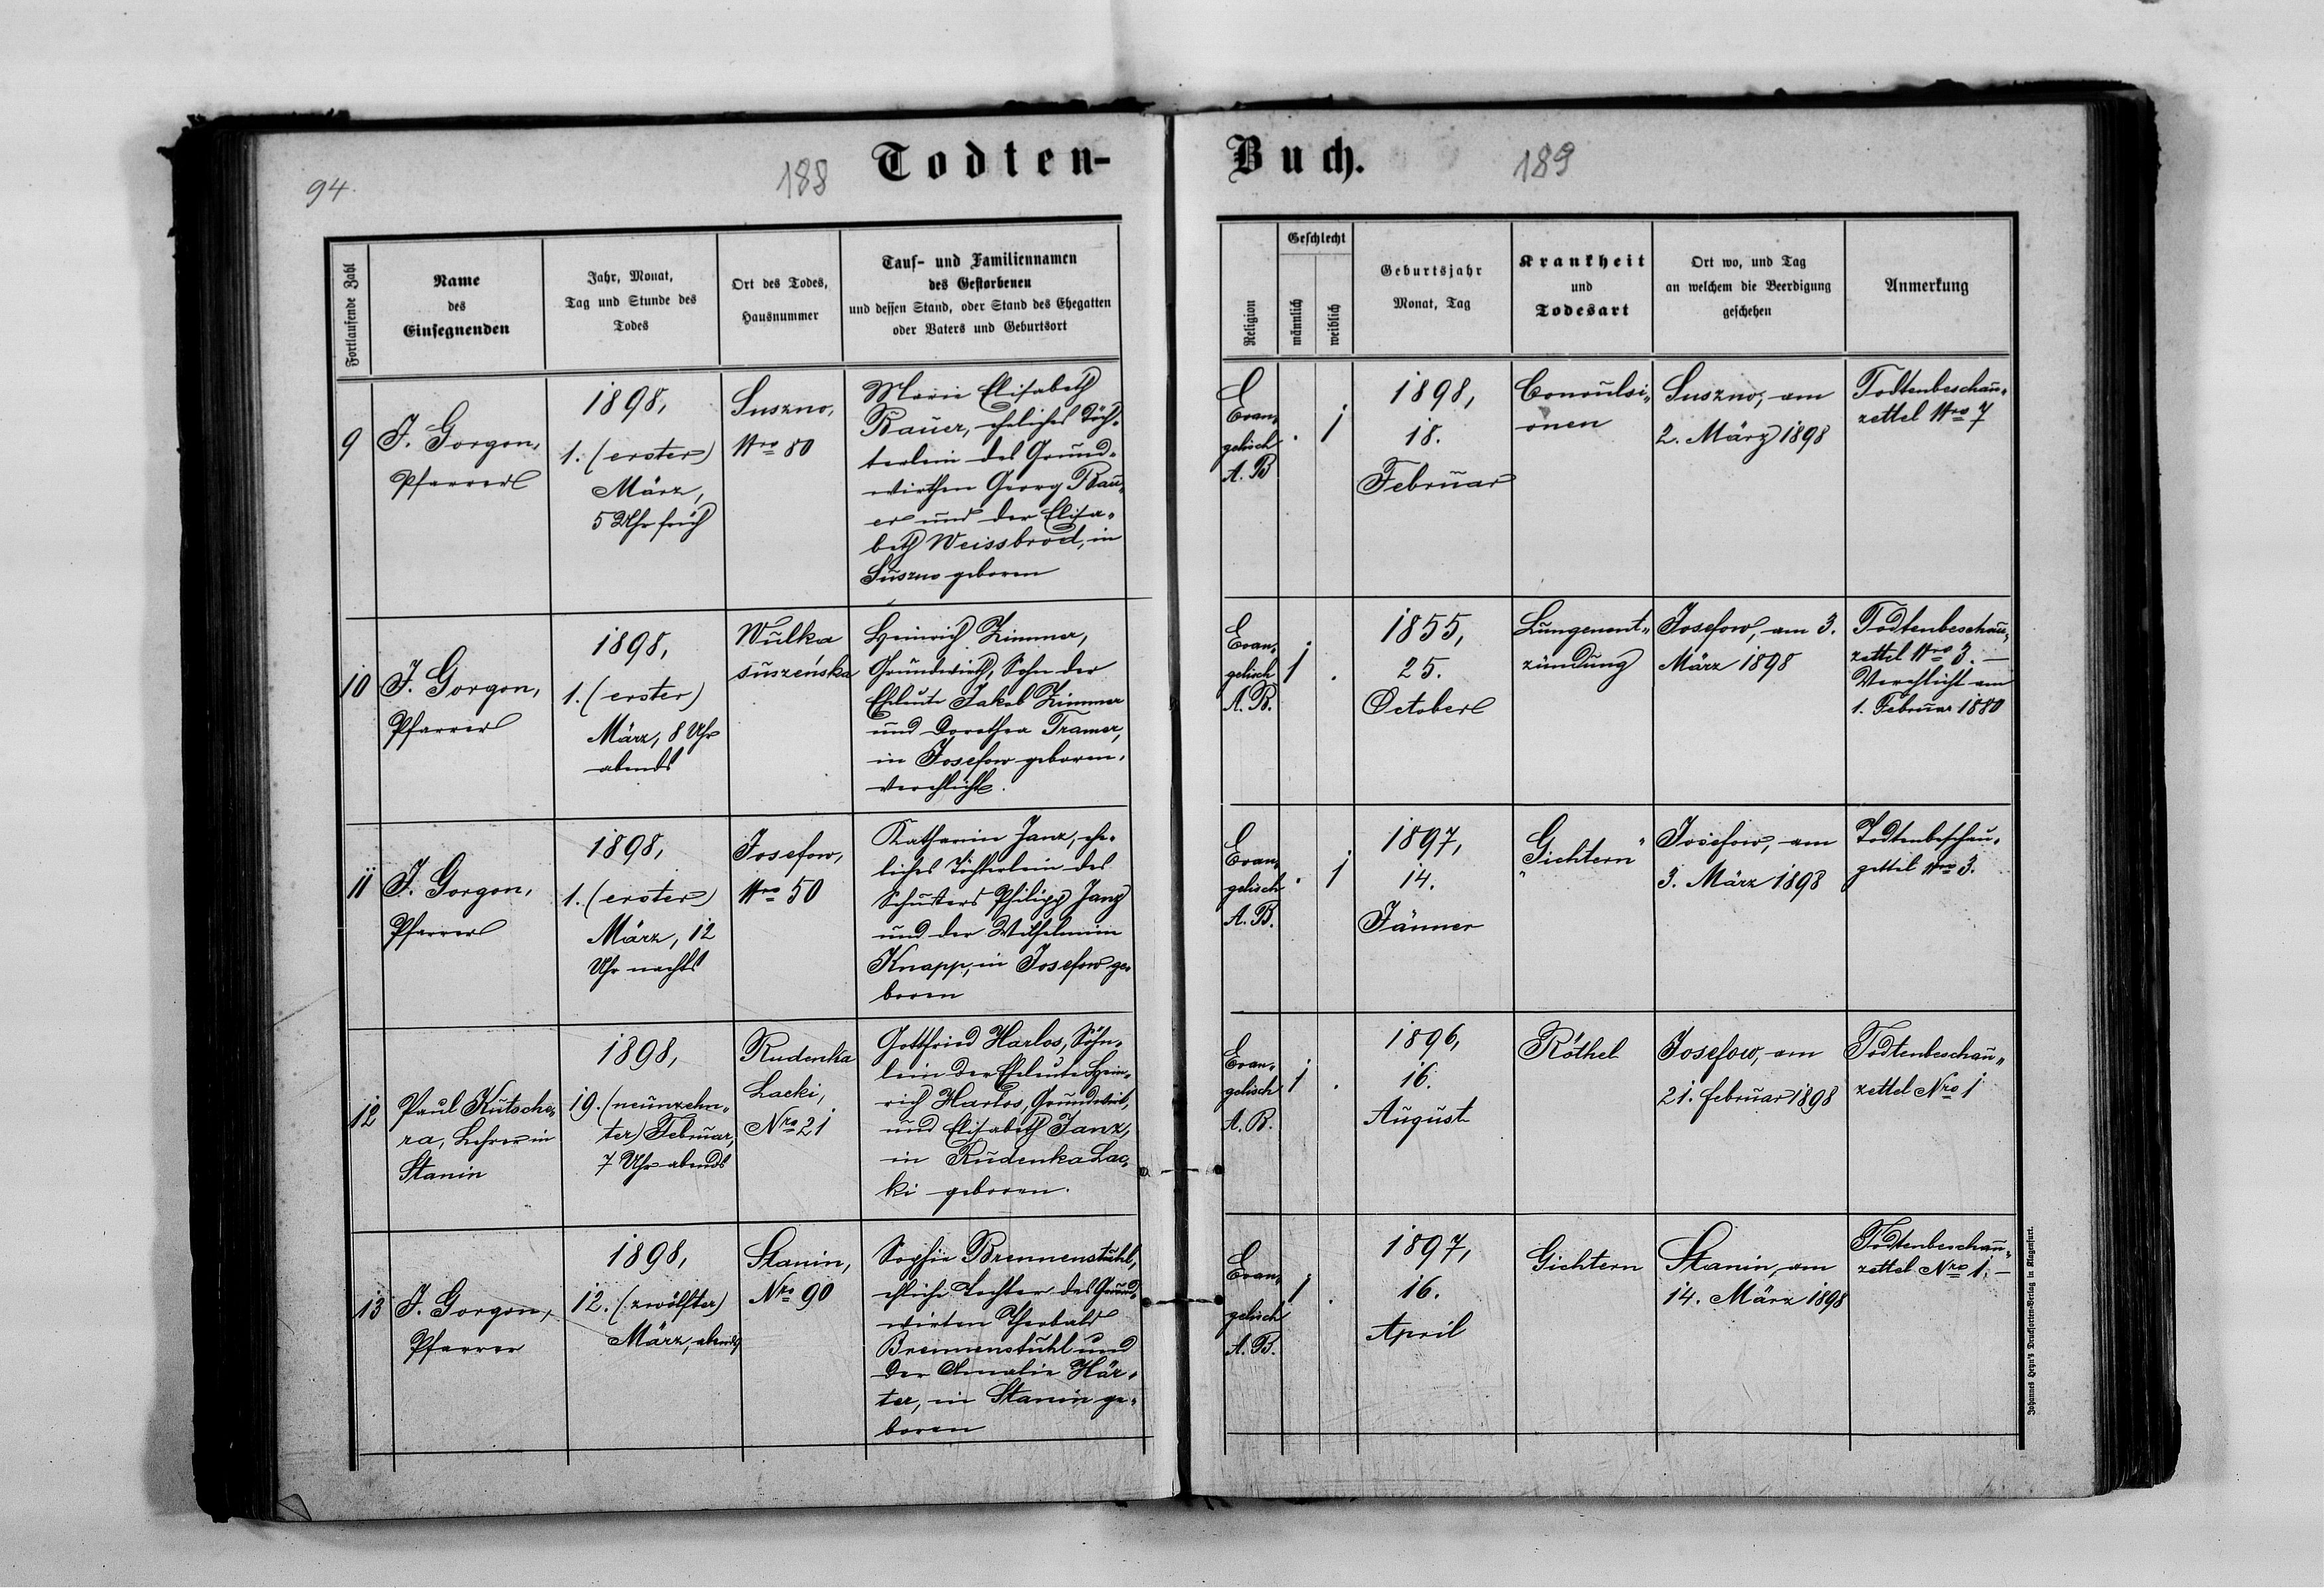 94.
188
Todten-
Buch.
189
Fortlaufende Zahl
Name
des
Einsegnenden
Jahr, Monat,
Tag und Stunde des
Todes
Ort des Todes,
Hausnummer
Tauf- und Familiennamen
des Gestorbenen
und dessen Stand, oder Stand des Ehegatten
oder Vaters und Geburtsort
Religion
Geschlecht
männlich
weiblich
Geburtsjahr
Monat, Tag
Krankheit
und
Todesart
Ort wo, und Tag
an welchem die Beerdigung
geschehen
Anmerkung
9
J. Gorgon,
Pfarrer
1898,
1. (erster)
März,
5 Uhr früh
Suszno,
Nro 80
Marie Elisabeth
Rauer, eheliches Töch-
terlein des Grund-
wirthen Georg Rau-
er und der Elisa-
beth Weissbrod, in
Suszno geboren
Evan-
gelisch
A. B
.
1
1898,
18.
Februar
Convulsi-
onen
Suszno, am
2. März 1898
Todtenbeschau-
zettel Nro 7
10
J. Gorgon,
Pfarrer
1898,
1. (erster)
März, 8 Uhr
abends
Wulka
suszeńska
Heinrich Zimmer,
Grundwirth, Sohn der
Eheleute Jakob Zimmer
und Dorothea Tramer,
in Josefow geboren,
verehlicht.
Evan-
gelisch
A. B.
1
.
1855,
25.
October
Lungenent-
zündung
Josefow, am 3.
März 1898
Todtenbeschau-
zettel Nro 3. —
Verehlicht am
1. Februar 1880
11
J. Gorgon,
Pfarrer
1898,
1. (erster)
März, 12
Uhr nachts
Josefow,
Nro 50
Katharina Janz, ehe-
liches Töchterlein des
Schusters Philipp Janz
und der Wilhelmine
Knapp, in Josefow ge-
boren
Evan-
gelisch
A. B.
.
1
1897,
14.
Jänner
"Gichtern"
Josefow, am
3. März 1898
Todtenbeschau-
zettel Nro 3.
12
Paul Kutsche-
ra, Lehrer in
Stanin
1898,
19. (neunzehn-
ter) Februar,
7 Uhr abends
Rudenka
Lacki,
Nro 21
Gottfried Harlos, Söhn-
lein der Eheleute Hein-
rich Harlos, Grundwirt,
und Elisabeth Janz,
in Rudenka Lac-
ki geboren.
Evan-
gelisch
A. B.
1
.
1896,
16.
August
Röthel
Josefow, am
21. februar 1898
Todtenbeschau-
zettel Nro 1
13
J. Gorgon,
Pfarrer
1898,
12. (zwölfter)
März, abends
Stanin,
Nro 90
Sophie Brennenstuhl,
ehliche Tochter des Grund-
wirten Theobald
Brennenstuhl und
der Amalie Här-
ter, in Stanin ge-
boren
Evan-
gelisch
A. B.
1
.
1897,
16.
April
Gichtern
Stanin, am
14. März 1898
Todtenbeschau-
zettel Nro 1. —
Johannes Heyn's Drucksorten-Verlag in Klagenfurt.